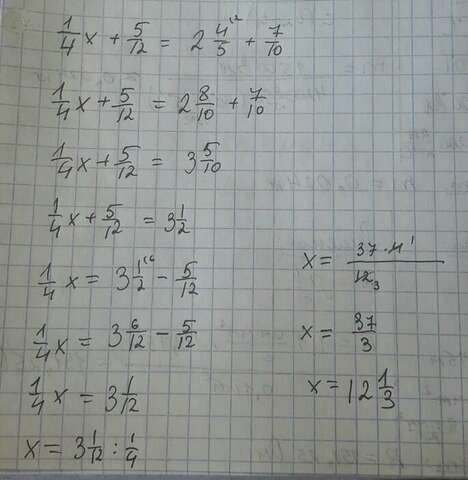 1/4 x + 5/12 = 2 4/5 ^12 + 7/10
1/4 x + 5/12 = 2 8/10 + 7/10
1/4 x + 5/12 = 3 5/10
1/4 x + 5/12 = 3 1/2
1/4 x = 3 1/2 ^16 − 5/12
1/4 x = 3 6/12 − 5/12
1/4 x = 3 1/12
x = 3 1/12 : 1/4
x = 37 · 4 ^1 / 12 _3
x = 37/3
x = 12 1/3